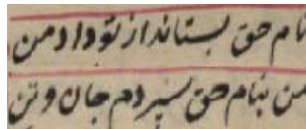 نام حق بستاند از تو داد من
من بنام حق سپردم جان و تن